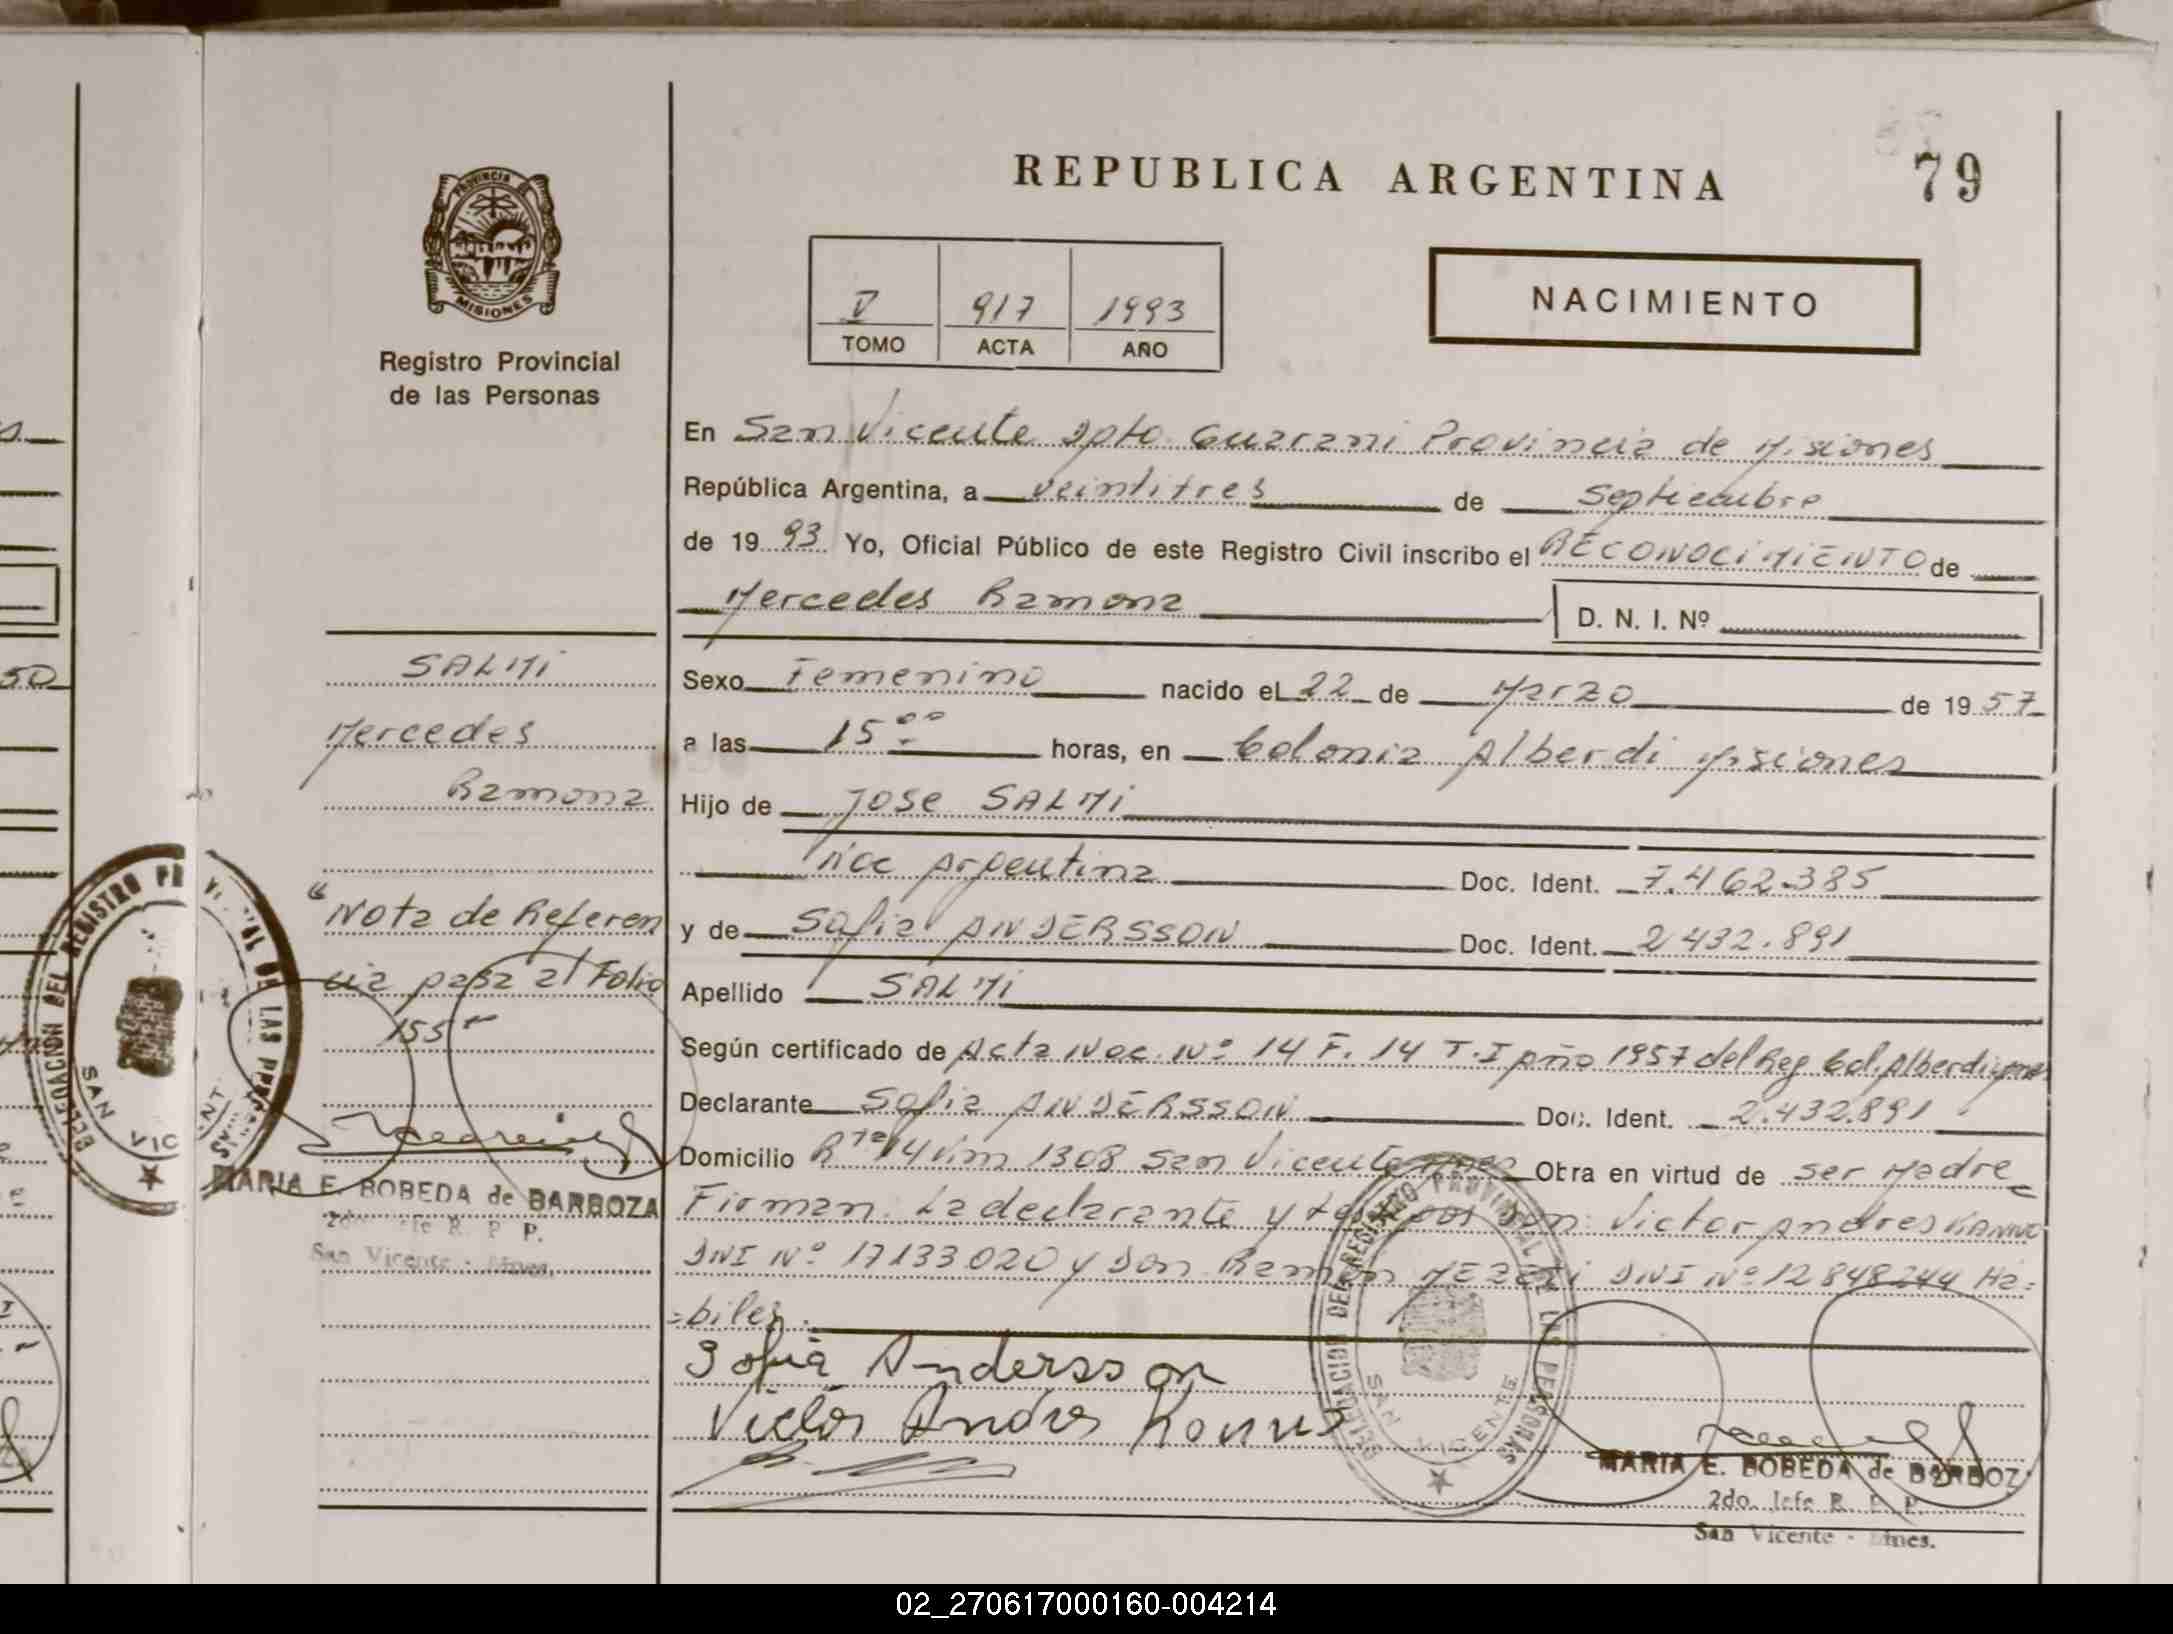 REPUBLICA ARGENTINA
79
PROVINCIA DE
MISIONES
Registro Provincial
de las Personas
V 917 1993
TOMO ACTA AÑO
NACIMIENTO
En San Vicente Dpto. Guarani Provincia de Misiones
República Argentina, a veintitres de Septiembre
de 1993. Yo, Oficial Público de este Registro Civil inscribo el RECONOCIMIENTO de
Mercedes Ramona
D. N. I. Nº
SALMI
Mercedes
Ramona
"Nota de Referen
cia pasa al Folio
155"
MARIA E. BOBEDA de BARBOZA
2do. Jefe R. P. P.
San Vicente - Mnes.
Sexo Femenino nacido el 22 de Marzo de 1957
a las 15 00 horas, en Colonia Alberdi Misiones
Hijo de Jose SALMI
Nac Argentina Doc. Ident. 7.462.385
y de Sofia ANDERSSON Doc. Ident. 2432.891
Apellido SALMI
Según certificado de Acta Nac. Nº 14 F. 14 T. I Año 1957 del Reg Col. Alberdi
Declarante Sofia ANDERSSON Doc. Ident. 2.432.891
Domicilio Rta 14 Km 1308 San Vicente Mnes Obra en virtud de ser Madre
Firman: La declarante y testigos Don: Victor Andres
DNI Nº 17133020 y Don Ramon DNI Nº 12848244 Há=
=biles.
Sofia Andersson
Victor Andres
DELEGACION DEL REGISTRO PROVINCIAL DE LAS PERSONAS
SAN VICENTE
MARIA E. BOBEDA de BARBOZ
2do. Jefe R. P. P.
San Vicente - Mnes.
DELEGACION DEL REGISTRO PROVINCIAL DE LAS PERSONAS
SAN VIC
50
02_270617000160-004214